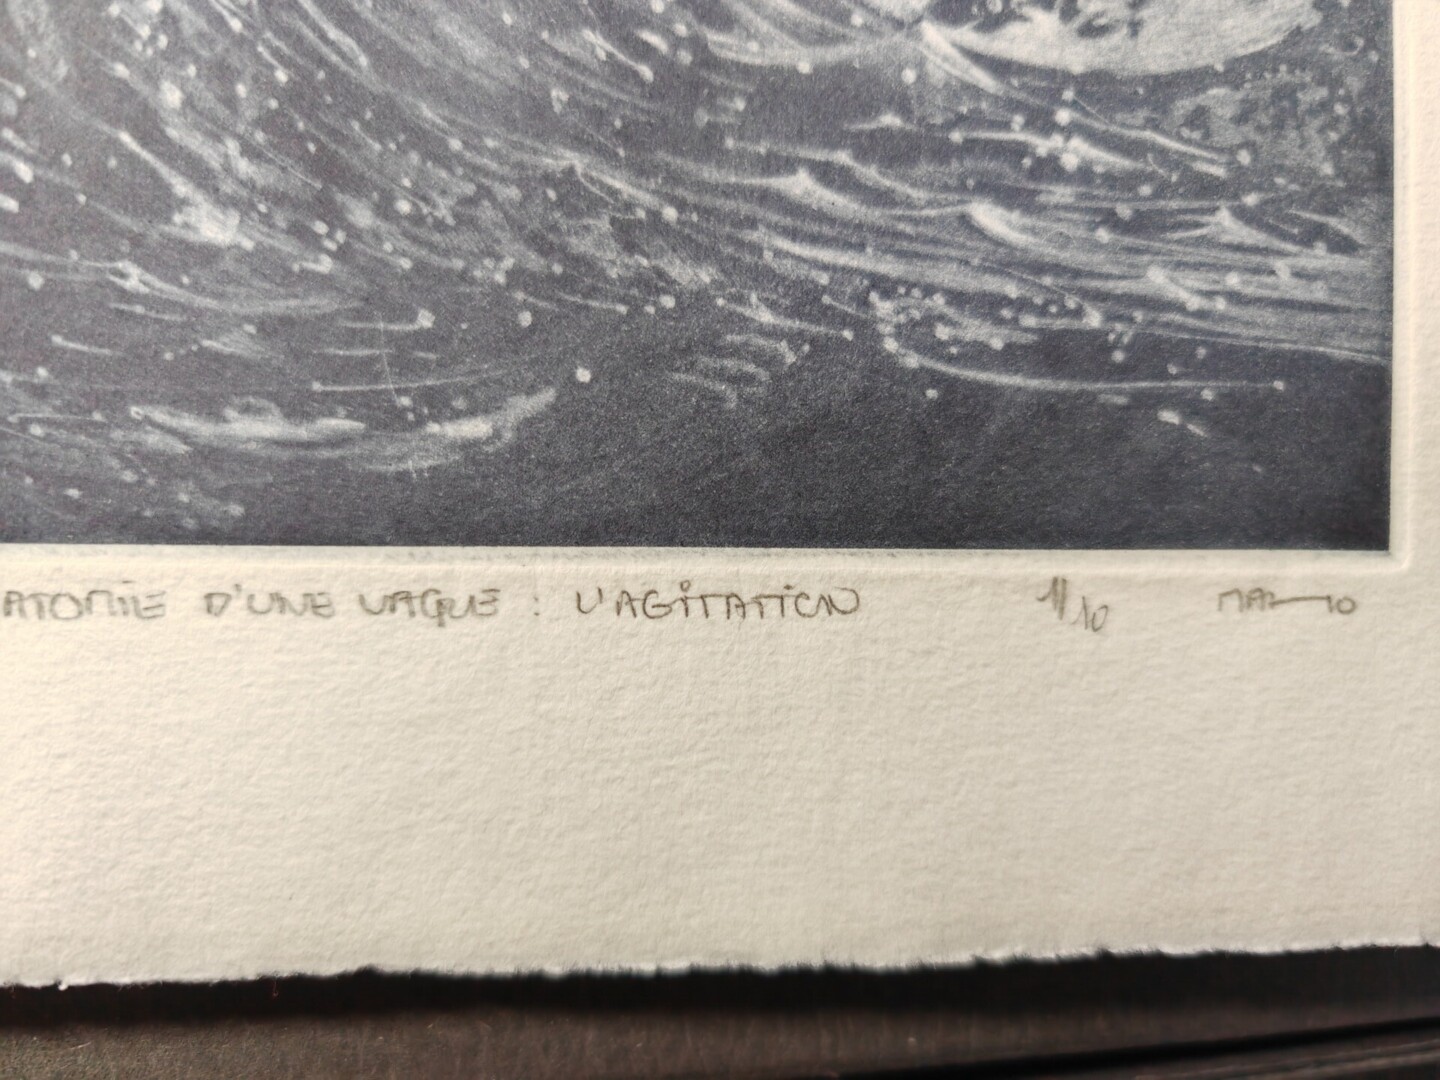 ATOMIE D'UNE VAGUE : L'AGITATION 1/10 MAI 10